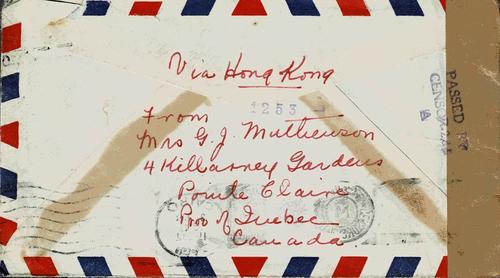 Via Hong Kong
1253
From
Mrs G. J. Mathewson
4 Killarney Gardens
Pointe Claire
Prov of Quebec
Canada
PASSED BY
CENSOR